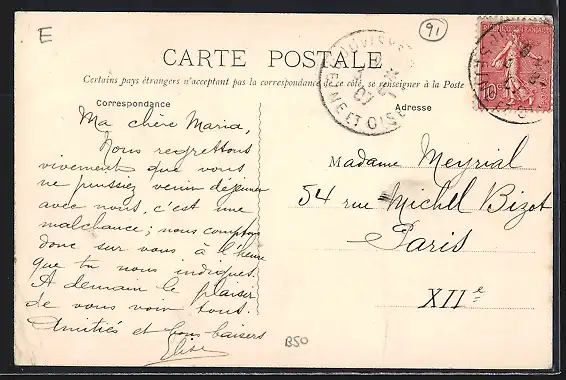 E
91
CARTE POSTALE
Certains pays étrangers n'acceptant pas la correspondance de ce côté, se renseigner à la Poste
Correspondance
Adresse
Ma chère Maria,
Nous regrettons
vivement que vous
ne puissiez venir déjeuner
avec nous, c'est une
malchance; nous comptons
donc sur vous à l'heure
que tu nous indiques.
A demain le plaisir
de vous voir tous.
Amitiés et bons baisers
Elise
Madame Meyrial
54 rue Michel Bizot
Paris
XIIe
B50
SEINE ET OISE
07
10c